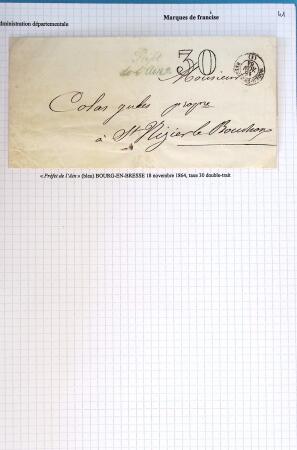 Marques de franchise
41
administration départementale
Préfet
de l'Ain
30
Monsieur
Colas
propre
à St Nizier le Bouchoux
« Préfet de l'Ain » (bleu) BOURG-EN-BRESSE 18 novembre 1864, taxe 30 double-trait